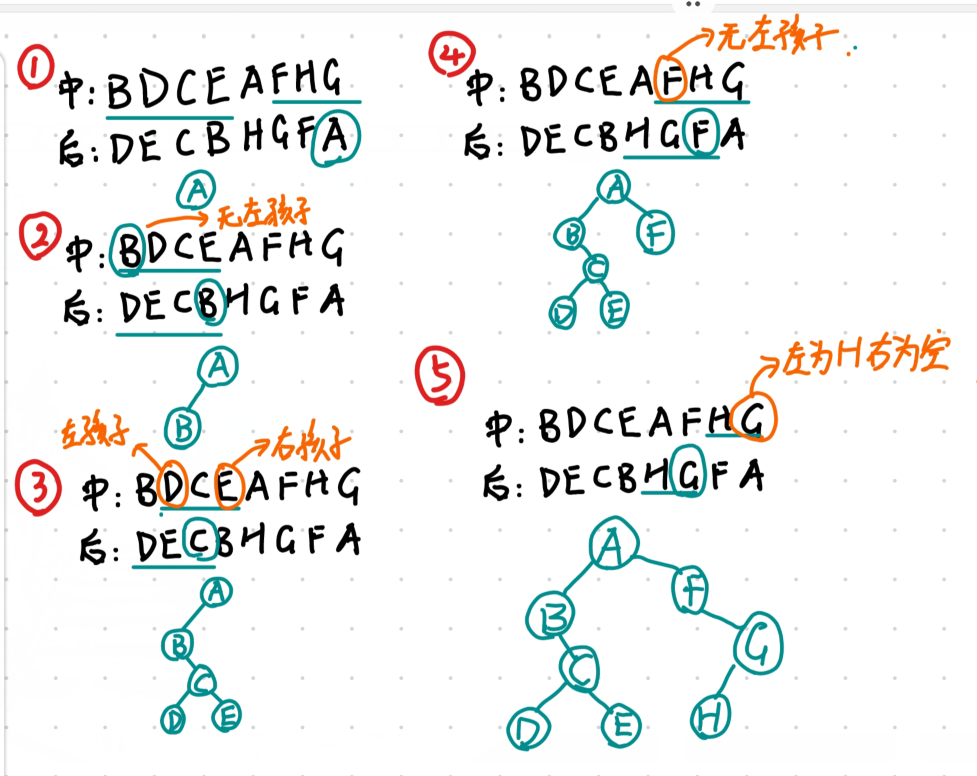 ①
中: BDCEAFHG
后: DECBHGFA
A
②
无左孩子
中: BDCEAFHG
后: DECBHGFA
A
B
左孩子
右孩子
③
中: BDCEAFHG
后: DECBHGFA
A
B
C
D E
④
无左孩子.
中: BDCEAFHG
后: DECBHGFA
A
B F
C
D E
⑤
左为H右为空
中: BDCEAFHG
后: DECBHGFA
A
B F
C G
D E H